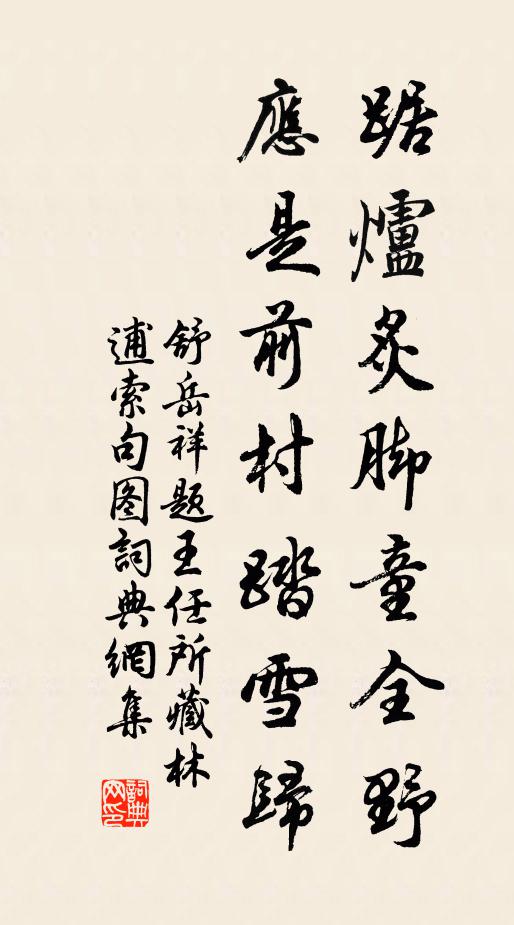 踞爐炙脚童全野
應是前村踏雪歸
舒岳祥題王任所藏林
逋索句图詞典網集
詞典网印